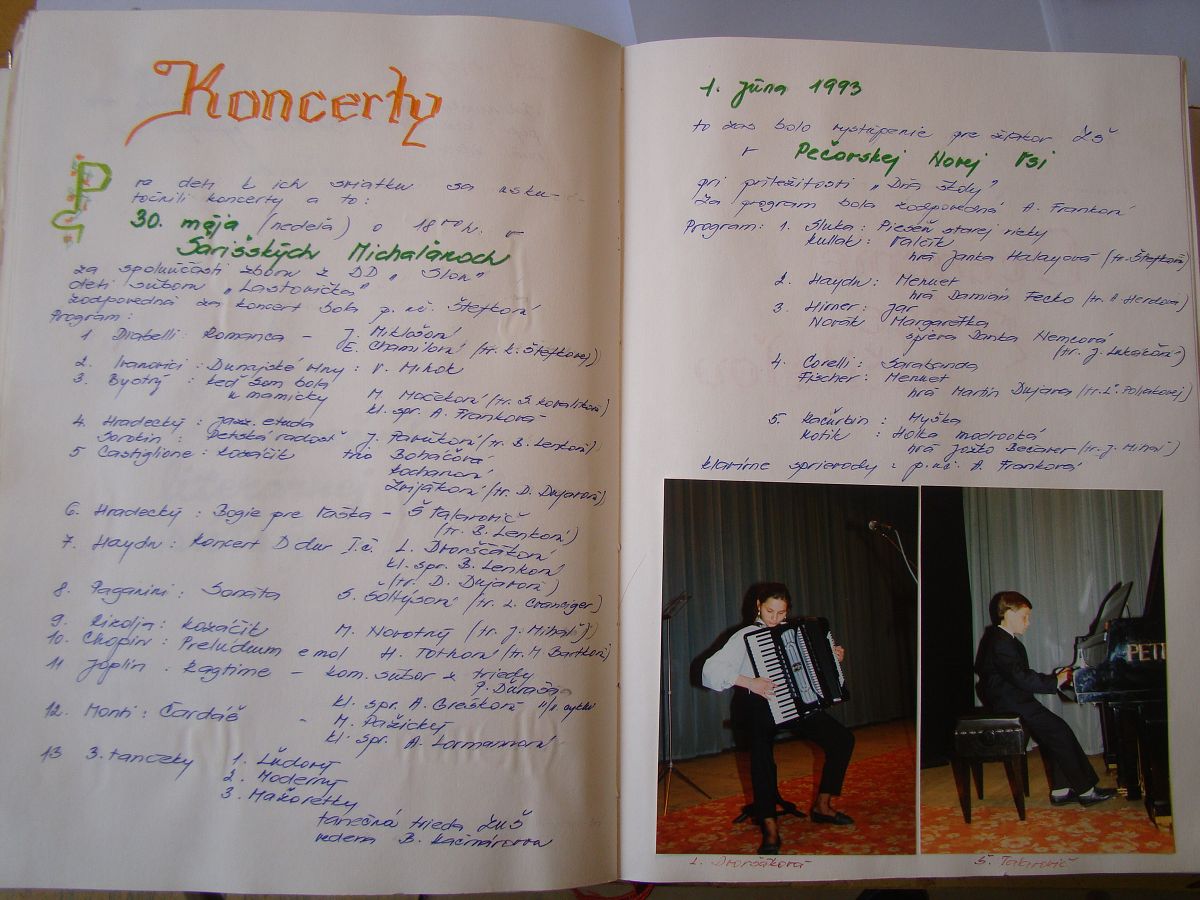 Koncerty
Pre deti k ich sviatku sa usku-
točnili koncerty a to:
30. mája (nedeľa) o 18 00 h. v
Šarišských Michaľanoch
za spoluúčasti zboru z DD "Slon"
deti súboru "Lastovička"
zodpovedná za koncert bola p. uč. Štefková
Program:
1. Diabelli: Romanca - J. Miklošová
E. Chamilová (tr. K. Štefkovej)
2. Ivanovici: Dunajské vlny: V. Mihok
3. Bystrý: keď som bola
u mamičky M. Močeková (tr. S. Kovalíková)
kl. spr. A. Franková
4. Hradecký: Jazz. etuda
Sorokin: Detská radosť J. Pavúková (tr. B. Lenková)
5 Castiglione: Kozáčik trio Boháčová
Kochanová
Zvijáková (tr. D. Dujavová)
6. Hradecký: Bogie pre Vaška - Š Talarovič
(tr. B. Lenková)
7. Haydn: Koncert D dur I.č. L. Dvorščáková
kl. spr. B. Lenková
(tr. D. Dujavová)
8. Paganini: Sonáta S. Šoltýsová (tr. L. Cranciger)
9. Rizolja: Kozáčik M. Novotný (tr. J. Mihaľ)
10. Chopin: Preludium e mol H. Tóthová (tr. M Bartková)
11 Joplin: Ragtime - kom. súbor z triedy
P. Ďuraša
kl. spr. A. Grešková II/II. cyklu
12. Monti: Čardáš - M. Pažický
kl. spr. A. Lormannová
13 3. tančeky 1. Ľudový
2. Moderný
3. Mažoretky
tanečná trieda ZUŠ
vedená B. Kačmárovou
1. júna 1993
to zas bolo vystúpenie pre žiakov ZŠ
v Pečovskej Novej Vsi
pri príležitosti "Dňa školy"
Za program bola zodpovedná A. Franková
Program: 1. Sluka: Pieseň starej rieky
Kullak: Valčík
hrá Janka Halayová (tr. Štefková)
2. Haydn: Menuet
hrá Damián Fecko (tr. A Herdová)
3. Hirner: Jar
Novák Margarétka
spieva Danka Nemcová
(tr. J. Lukáčová)
4 Corelli: Sarabanda
Fischer: Menuet
hrá Martin Dujava (tr. Ľ. Poliakovej)
5. Kačurbin: Myška
Kotík: Holka modrooká
hrá Jožko Bečaver (tr. J. Mihaľ)
klavírne sprievody: p. uč. A. Franková
PETR
L. Dvorščáková
Š. Talarovič